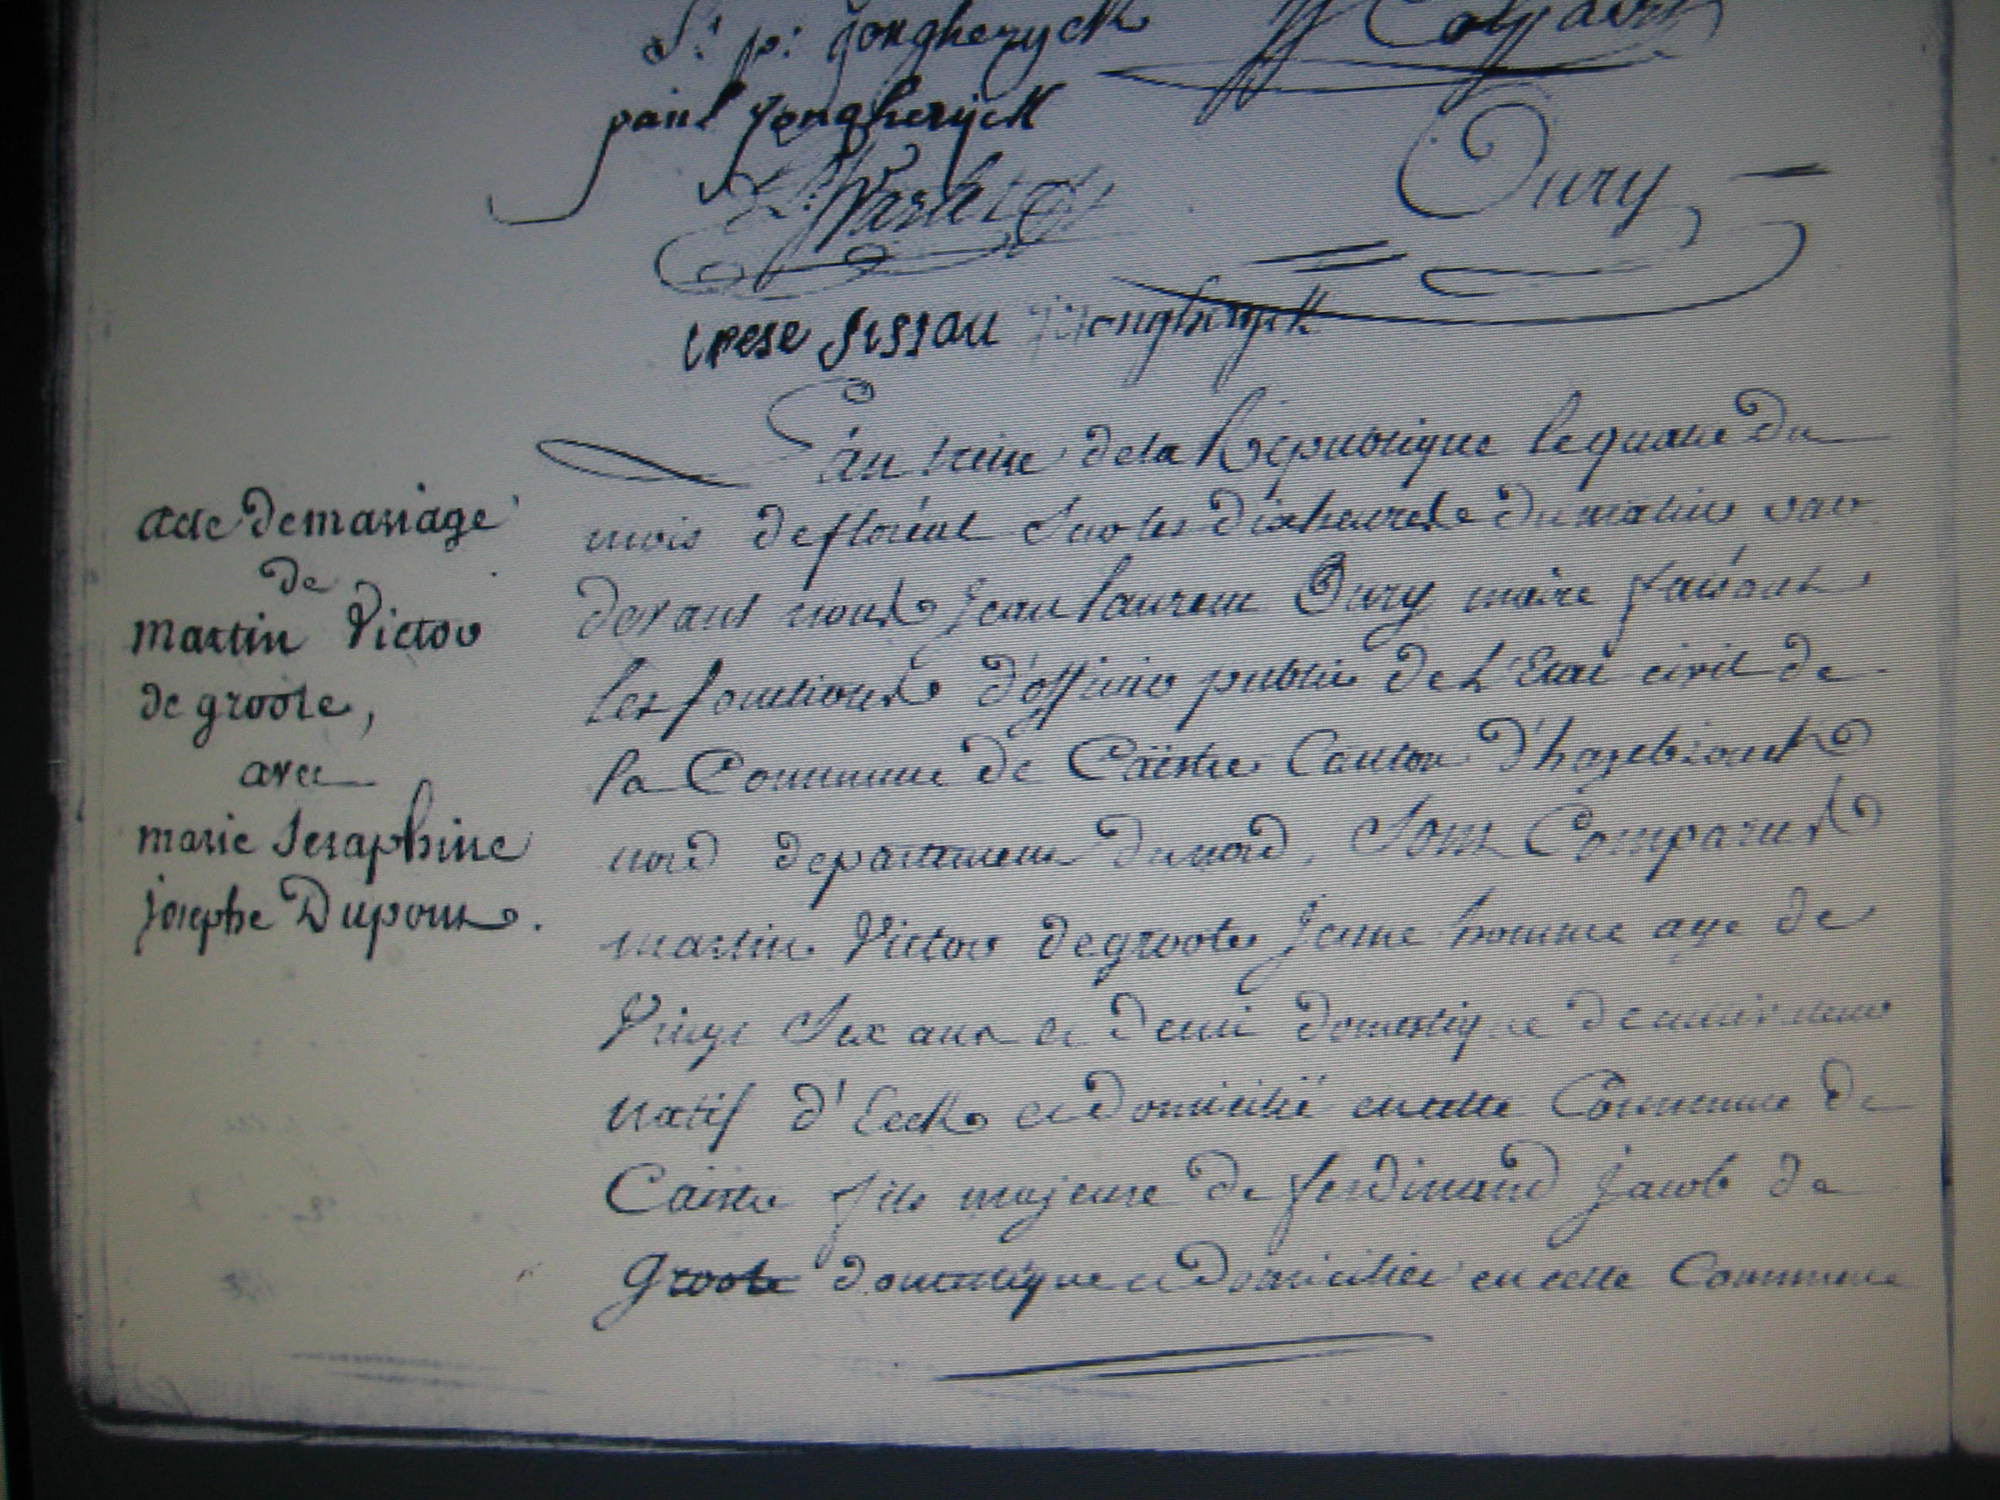 S: p: jongheryck
paul jongheryck
Oury
ipese fissau jongheryck
acte de mariage
de
martin Victor
de groote,
avec
marie Seraphine
josephe Dupont.
L'an treize de la Republique le quatre du
mois de floréal sur les dix heures du matin par
devant nous jean laurent Oury maire faisant
les fonctions d'officier public de L'Etat civil de
la Commune de Caëstre Canton d'hazebrouck
nord departement du nord, Sont Comparus
martin Victor de groote jeune homme age de
Vingt Six ans et demi domestique de
natif d'Eecke et domicilié en cette Commune de
Caëstre fils majeure de ferdinand jacob de
Groote domestique et domicilier en cette Commune